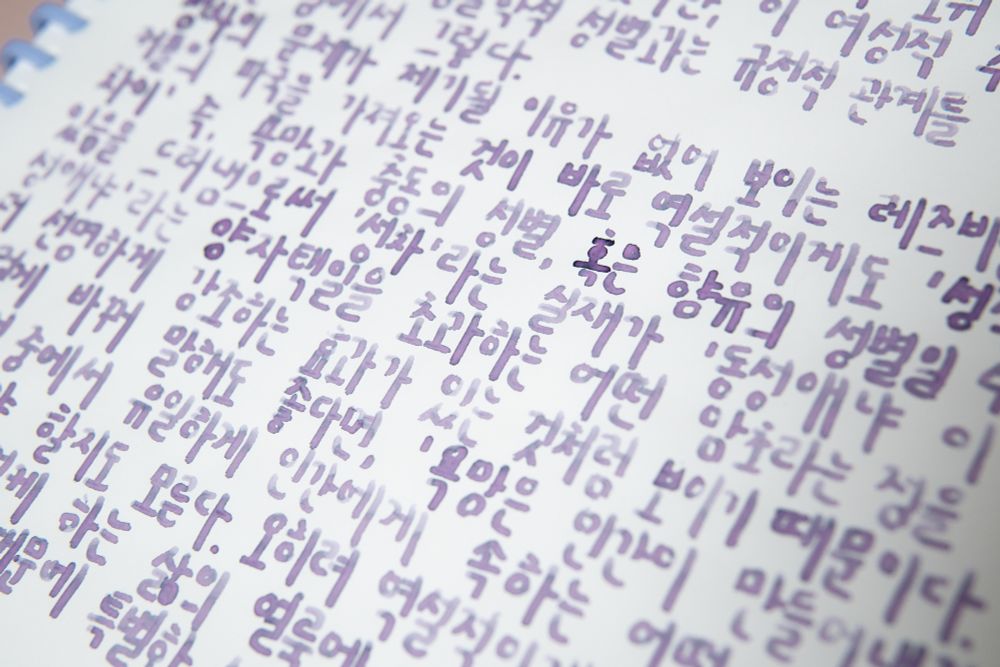 이 여성적
성별과는 규정적 관계를
그렇다.
문제가 제기될 이유가 없어 보이는 레즈비
파국을 가져오는 것이 바로 역설적이게도 '성
차이' 즉, 욕망과 충동의 성별, 혹은 향유의 성별일
있음을 드러냄으로써 '성차'라는 실재가 '도서애냐 이
실애냐'라는 양자택일을 초과하는 어떤 암호라는 점을
선명하게 강조하는 효과가 있는 것처럼 보이기 때문이다.
바꿔 말해도 좋다면, '욕망은 인간이 만들어낸
중에서 유일하게 인간에게 속하는 어떤
할지도 모른다. 오히려 역설적이
하는 삶의 얼룩에
때문에 특별한